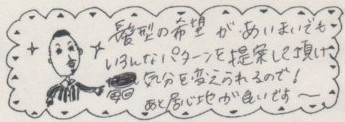 髪型の希望があいまいでも
いろんなパターンを提案して頂け
気分を変えられるので!
あと居心地が良いです〜